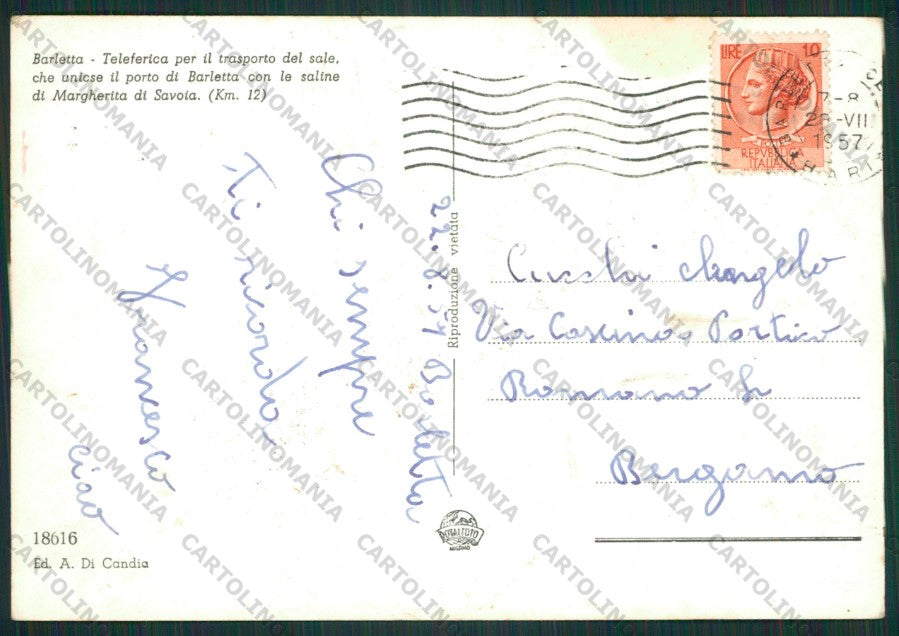 Barletta - Teleferica per il trasporto del sale,
che unicse il porto di Barletta con le saline
di Margherita di Savoia. (Km. 12)
LIRE 10
REPUBBLICA
ITALIANA
7-8
28-VII
1957
Chi sempre
Ti ricorda
Francesco
ciao
22.8.57 Barletta
Riproduzione vietata
Angelo
Via Cascina Portico
Romano L
Bergamo
18616
Ed. A. Di Candia
ROTALFOTO
MILANO
CARTOLINOMANIA